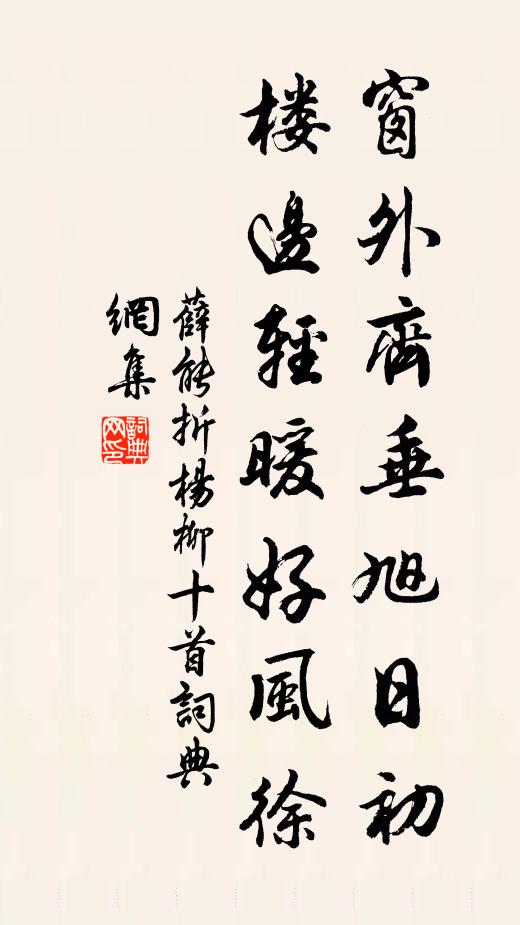 窗外齊垂旭日初
楼邊輕暖好風徐
薛能折楊柳十首詞典
網集
詞典
网印